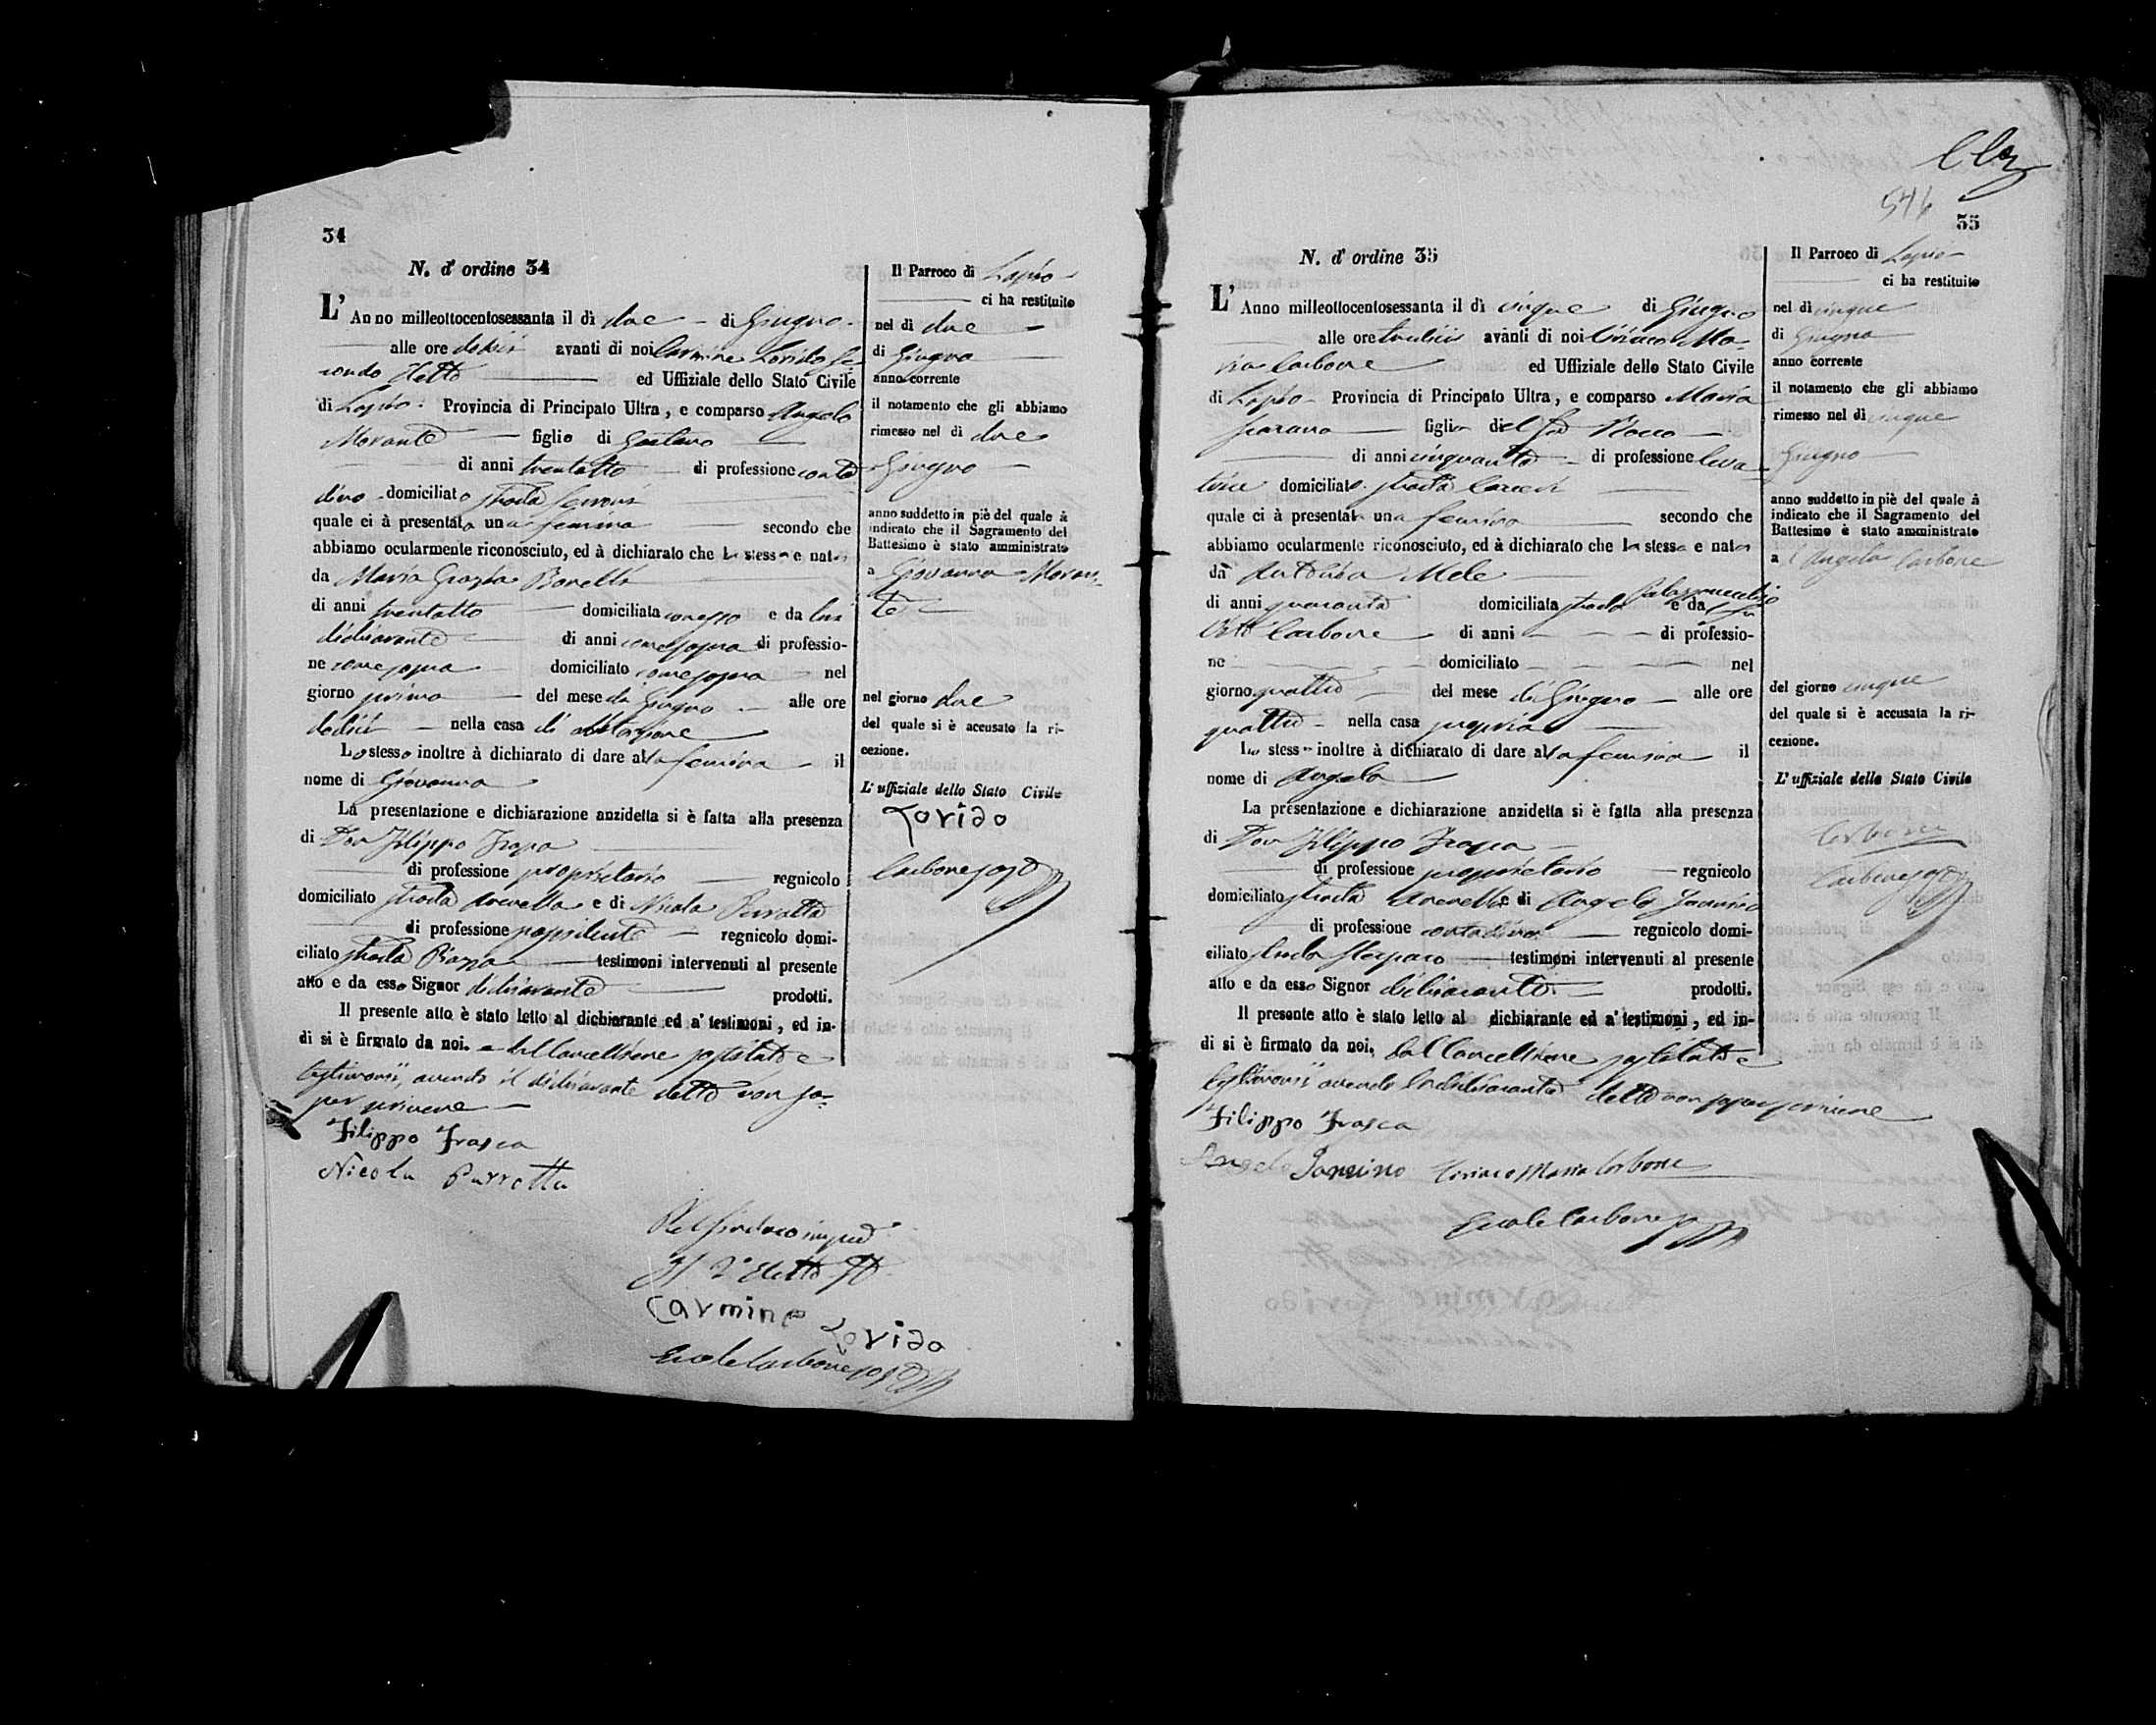 34
N. d' ordine 34
L' Anno milleottocentosessanta il dì due di Giugno
alle ore dodici avanti di noi Carmine Lorido Se
condo Eletto ed Uffiziale dello Stato Civile
di Lapio Provincia di Principato Ultra, e comparso Angelo
Morante figlio di Gaetano
di anni trentotto di professione conta
dino domiciliato strada
quale ci à presentata una femina secondo che
abbiamo ocularmente riconosciuto, ed à dichiarato che la stessa e nata
da Maria Grazia
di anni trentotto domiciliata e da lui
dichiarante di anni come sopra di professio-
ne come sopra domiciliato come sopra nel
giorno primo del mese di Giugno alle ore
dodici nella casa di abitazione
Lo stesso inoltre à dichiarato di dare alla femina il
nome di Giovanna
La presentazione e dichiarazione anzidetta si è fatta alla presenza
di Don Filippo Frasca
di professione proprietario regnicolo
domiciliato strada e di Nicola Parrotta
di professione regnicolo domi-
ciliato strada Piazza testimoni intervenuti al presente
atto e da esso Signor dichiarante prodotti.
Il presente atto è stato letto al dichiarante ed a' testimoni, ed in-
di si è firmato da noi. dal Cancelliere sostituto e
testimonii, avendo il dichiarante detto non sa-
per scrivere
Filippo Frasca
Nicola Parrotta
Pel Sindaco
Il 2° Eletto
Carmine Lorido
Carbone
Il Parroco di Lapio
ci ha restituito
nel dì due
di Giugno
anno corrente
il notamento che gli abbiamo
rimesso nel dì due
Giugno
anno suddetto in piè del quale à
indicato che il Sagramento del
Battesimo è stato amministrato
a Giovanna Moran-
te
nel giorno due
del quale si è accusato la ri-
cezione.
L' uffiziale dello Stato Civile
Lorido
Carbone
546
35
N. d' ordine 35
L' Anno milleottocentosessanta il dì cinque di Giugno
alle ore tredici avanti di noi Ciriaco Ma-
ria Carbone ed Uffiziale dello Stato Civile
di Lapio Provincia di Principato Ultra, e comparso Maria
Scarano figlia del fu Rocco
di anni cinquanta di professione leva
trice domiciliata strada
quale ci à presentata una femina secondo che
abbiamo ocularmente riconosciuto, ed à dichiarato che la stessa e nata
da Antonia Mele
di anni quaranta domiciliata strada e da fu
Vito Carbone di anni di professio-
ne domiciliato nel
giorno quattro del mese di Giugno alle ore
quattro nella casa propria
La stessa inoltre à dichiarato di dare alla femina il
nome di Angela
La presentazione e dichiarazione anzidetta si è fatta alla presenza
di Don Filippo Frasca
di professione proprietario regnicolo
domiciliato strada e di Angelo
di professione contadino regnicolo domi-
ciliato strada testimoni intervenuti al presente
atto e da esso Signor dichiarante prodotti.
Il presente atto è stato letto al dichiarante ed a' testimoni, ed in-
di si è firmato da noi, dal Cancelliere sostituto e
testimonii avendo la dichiarante detto non saper scrivere
Filippo Frasca
Angelo Ciriaco Maria Carbone
Carbone
Il Parroco di Lapio
ci ha restituito
nel dì cinque
di Giugno
anno corrente
il notamento che gli abbiamo
rimesso nel dì cinque
Giugno
anno suddetto in piè del quale à
indicato che il Sagramento del
Battesimo è stato amministrato
a Angela Carbone
del giorno cinque
del quale si è accusata la ri-
cezione.
L' uffiziale dello Stato Civile
Carbone
Carbone